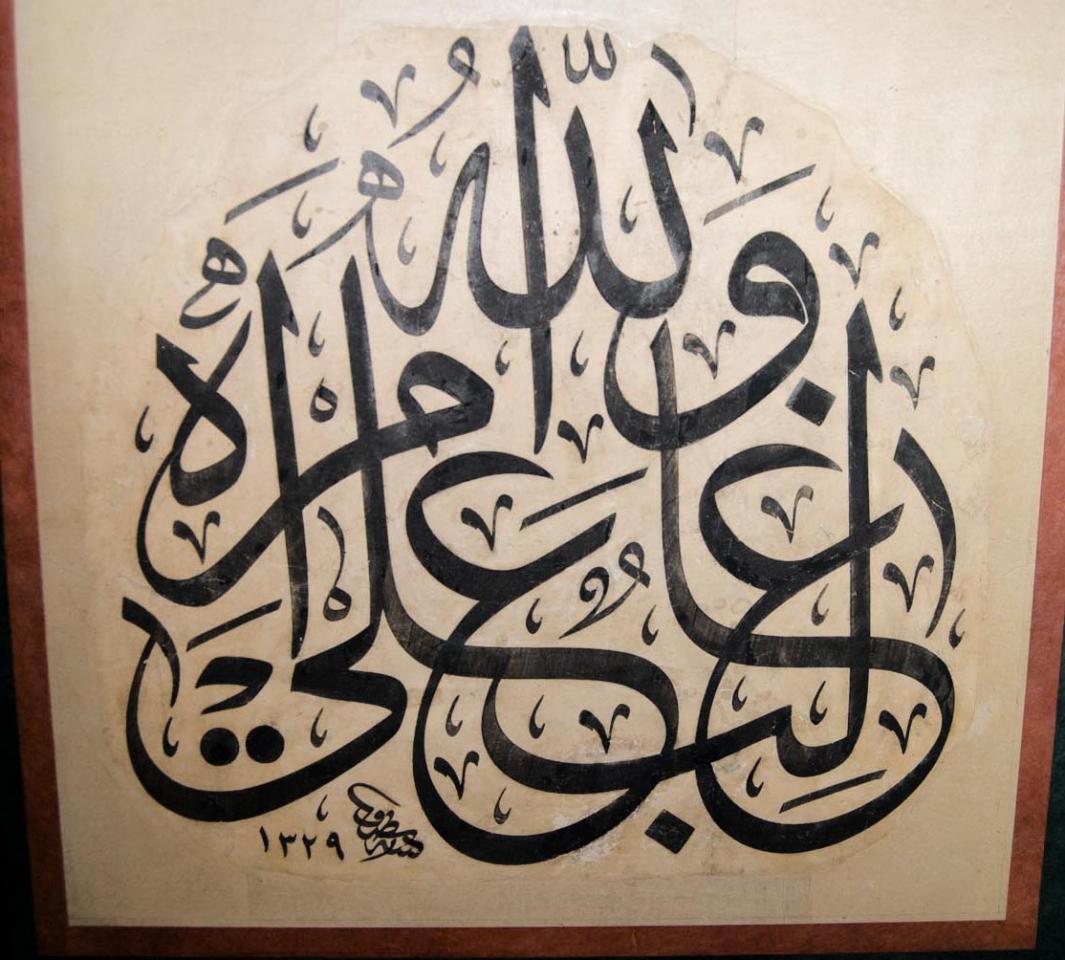 والله غالب على امره
١٣٢٩